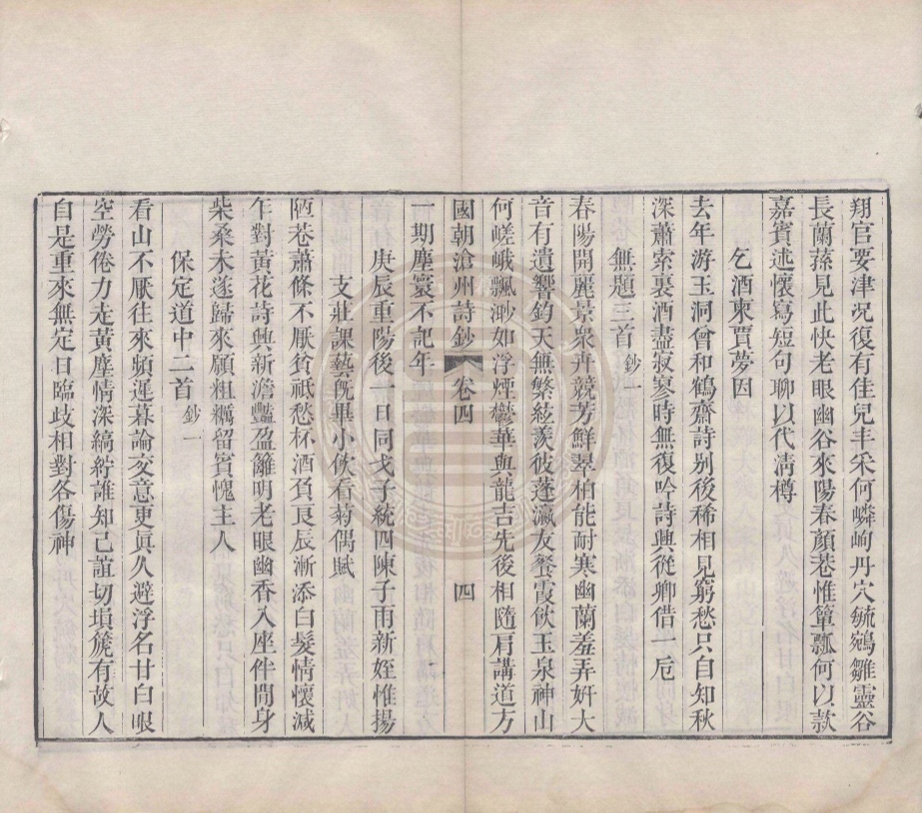 翔官要津況復有佳兒丰采何嶙峋丹穴毓鵷雛靈谷
長蘭蓀見此快老眼幽谷來陽春顏巷惟簞瓢何以款
嘉賓述懷寫短句聊以代清樽
乞酒柬賈夢因
去年游玉洞曾和鶴齋詩别後稀相見窮愁只自知秋
深蕭索裏酒盡寂寥時無復吟詩興從卿借一卮
無題三首 鈔一
春陽開麗景衆卉競芳鮮翠柏能耐寒幽蘭羞弄妍大
音有遺響鈞天無繁絃羨彼蓬瀛友餐霞飲玉泉神山
何嵯峨飄渺如浮煙欎華與龍吉先後相隨肩講道方
國朝滄州詩鈔 卷四 四
一期塵寰不記年
庚辰重陽後一日同戈子統四陳子雨新姪惟揚
支莊課藝旣畢小飲看菊偶賦
陋巷蕭條不厭貧祇愁杯酒負良辰漸添白髮情懷減
乍對黃花詩興新澹豔盈籬明老眼幽香入座伴閒身
柴桑未遂歸來願粗糲留賓愧主人
保定道中二首 鈔一
看山不厭往來頻遲暮論交意更眞久避浮名甘白眼
空勞倦力走黃塵情深縞紵誰知己誼切塤篪有故人
自是重來無定日臨歧相對各傷神